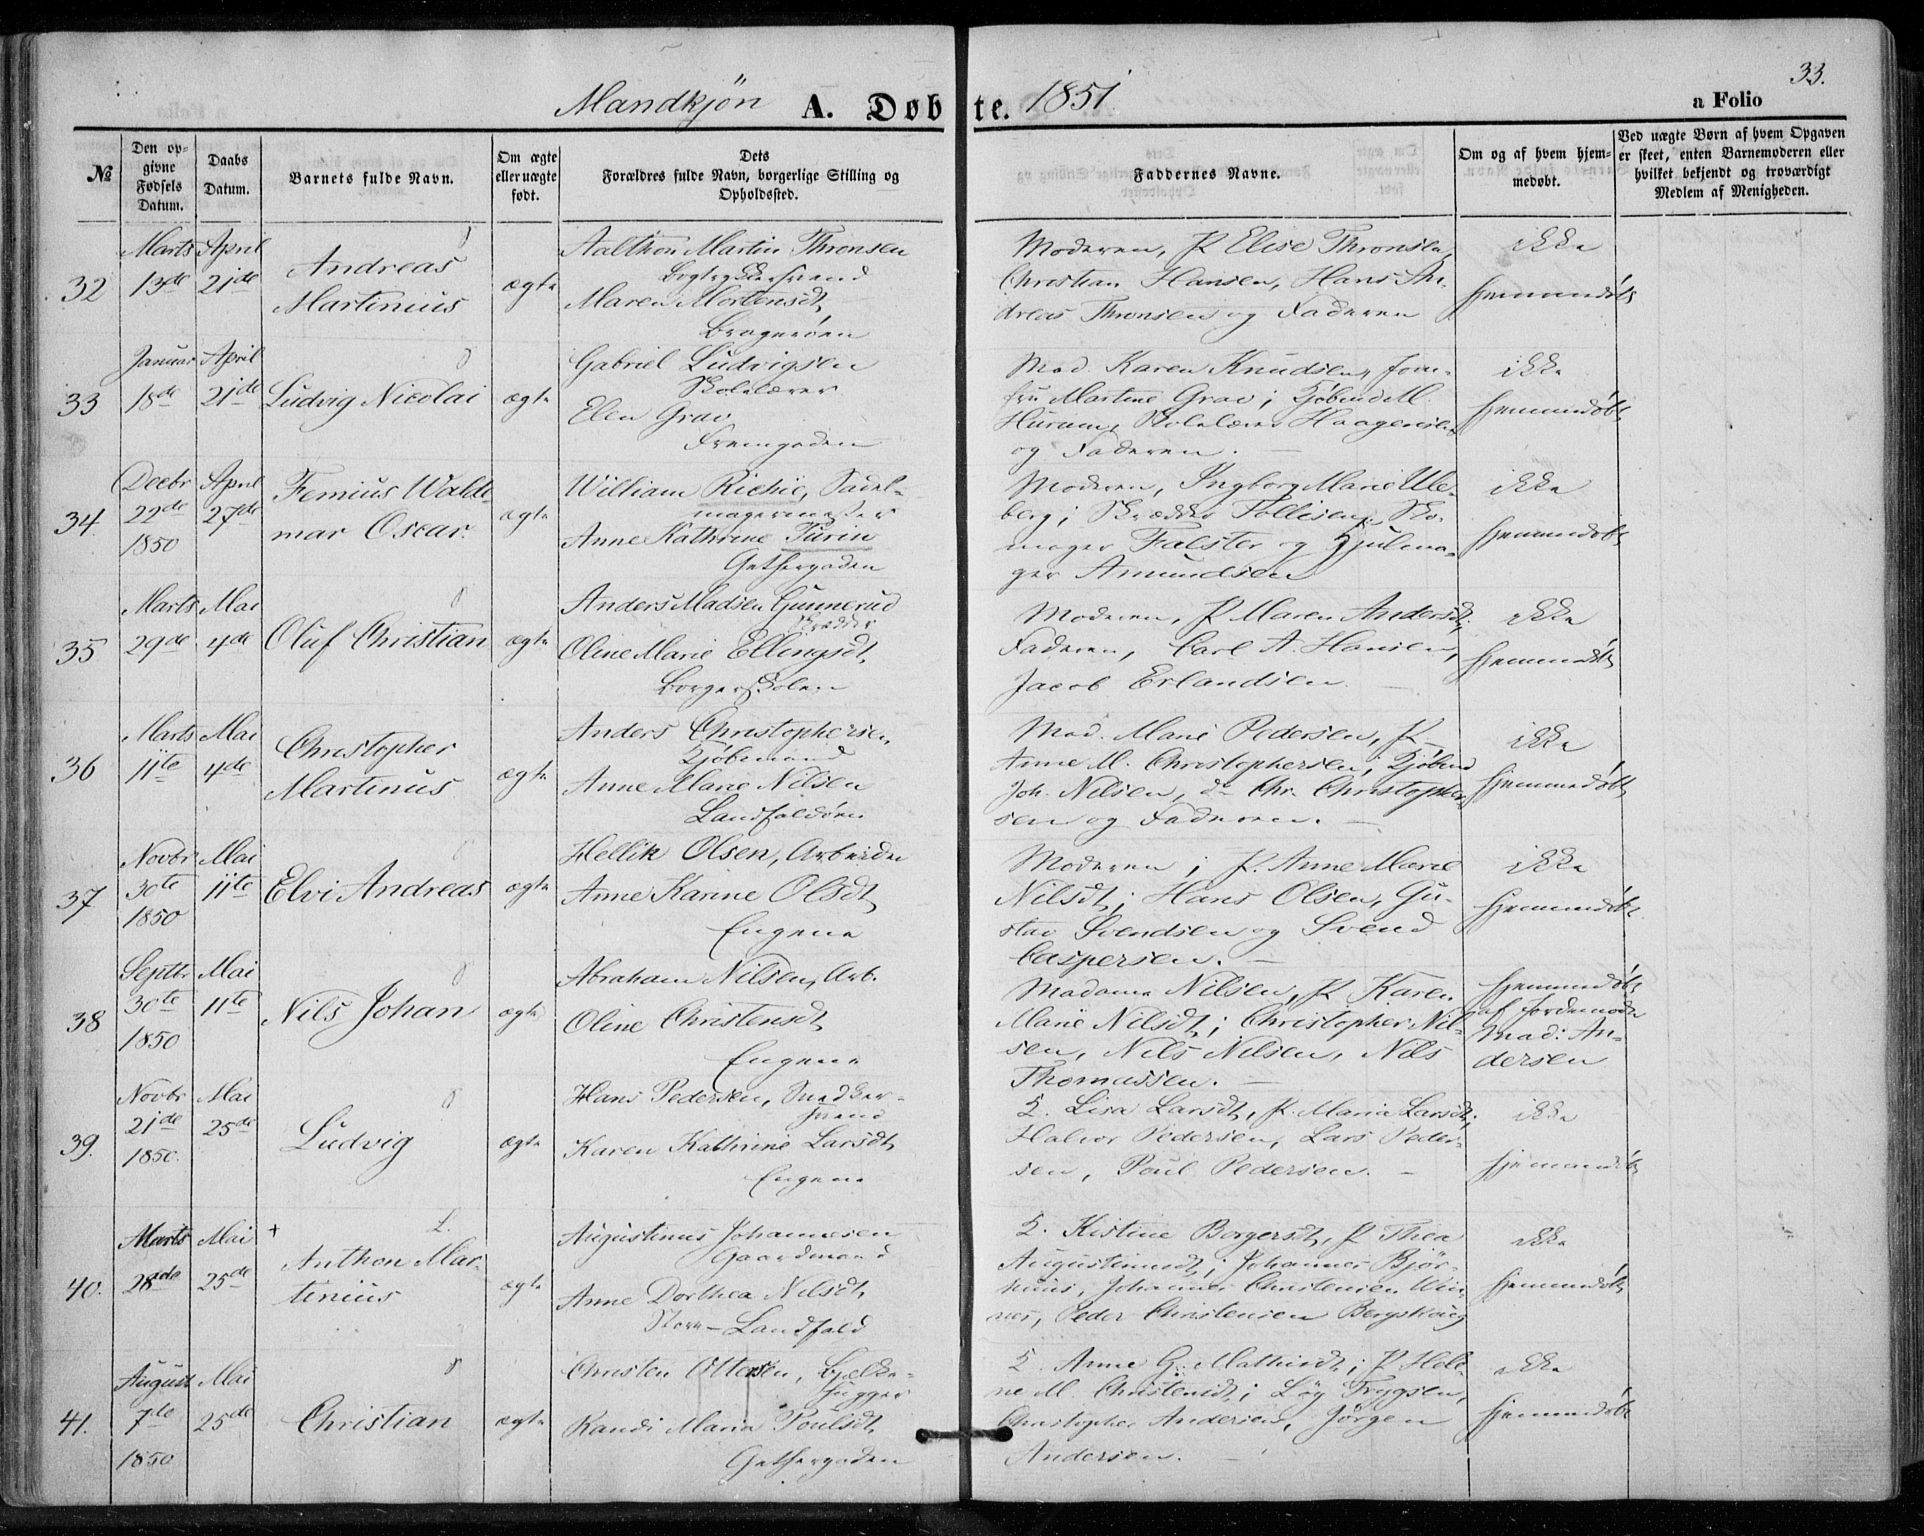 33.
Mandkjön A. Døbte. 1851. a Folio
№ Den opgivne Fødsels Datum. Daabs Datum. Barnets fulde Navn. Om ægte eller uægte født. Dets Forældres fulde Navn, borgerlige Stilling og Opholdssted. Faddernes Navne. Om og af hvem hjemmedøbt. Ved uægte Børn af hvem Opgaven er skeet, enten Barnemoderen eller hvilket bekjendt og troværdigt Medlem af Menigheden.
32 Marts 13de April 21de Andreas Martinius ægte
Martin Thronsen
Bogtrykkersvend
Maren Mortensdt,
Bragerøen
Moderen, P Elise Thronsen,
Christian Hansen, Hans An-
dreas Thronsen og Faderen
ikke hjemmedøbt
33 Januar 18de April 21de Ludvig Nicolai ægte
Gabriel Ludvigsen
Skolelærer
Elen Grav
Fremgaden
Mad. Karen Knudsen, Jom-
fru Martine Grav; Kjøbmd M.
Hurum, Skolelærer Haagensen
og Faderen. —
ikke hjemmedøbt
34. Decbr 22de 1850 April 27de Femius Walde-
mar Oscar. ægte
William Richie, Sadel-
magermester
Anne Kathrine Turin
Gethergaden
Moderen, Ingborg Marie Ule-
berg; Skrædder Tollisen, Sko-
mager Falster og Hjulma-
ger Amundsen
ikke hjemmedøbt
35 Marts 29de Mai 4de Oluf Christian ægte
Anders Madsen Gunnerud
Skrædder
Oline Marie Ellingsdt,
Borgerskolen
Moderen, P Maren Andersdt,
Faderen, Carl A. Hansen,
Jacob Erlandsen —
ikke hjemmedøbt
36 Marts 11te Mai 4de Christopher
Martinus ægte
Anders Christophersen,
Kjøbmand
Anne Marie Nilsen
Landfaldøen
Mad. Marie Pedersen, P
Anne M. Christophersen; Kjøbmd
Joh. Nilsen, do Chr. Christopher-
sen og Faderen. —
ikke hjemmedøbt
37 Novbr 30te 1850 Mai 11te Elvi Andreas ægte
Hellik Olsen, Arbeider
Anne Karine Olsdt,
Engene
Moderen; P. Anne Marie
Nilsdt; Hans Olsen, Gu-
stav Svendsen og Svend
Caspersen. —
ikke hjemmedøbt
38 Septbr 30te 1850 Mai 11te Nils Johan ægte
Abraham Nilsen, Arb.
Oline Christensdt,
Engene
Madame Nilsen, P Karen
Marie Nilsdt; Christopher Nil-
sen, Nils Nilsen, Nils
Thomassen. —
hjemmedøbt
af Jordemoder
Mad: An-
dersen
39. Novbr 21de 1850. Mai 25de Ludvig ægte
Hans Pedersen, Snedker-
svend
Karen Kathrine Larsdt,
Engene
Lisa Larsdt, P. Maria Larsdt;
Halvor Pedersen, Lars Peder-
sen, Poul Pedersen. —
ikke hjemmedøbt
40. Marts 28de Mai 25de + L.
Anthon Mar-
tinius ægte
Augustinus Johannesen
Gaardmand
Anne Dorthea Nilsdt,
Store-Landfald
Kistine Borgersdt, P Thea
Augustinusdt; Johannes Bjør-
Johannes Christensen
Peder Christensen
ikke hjemmedøbt
41. August 7de 1850 Mai 25de Christian ægte
Christen Ottersen, Bjelke-
hugger
Randi Maria Poulsdt,
Gethergaden
Anne G. Mathisdt; P Hele-
ne M. Christensdt; Trygsen,
Christopher Andersen, Jörgen
Andersen.
ikke hjemmedøbt